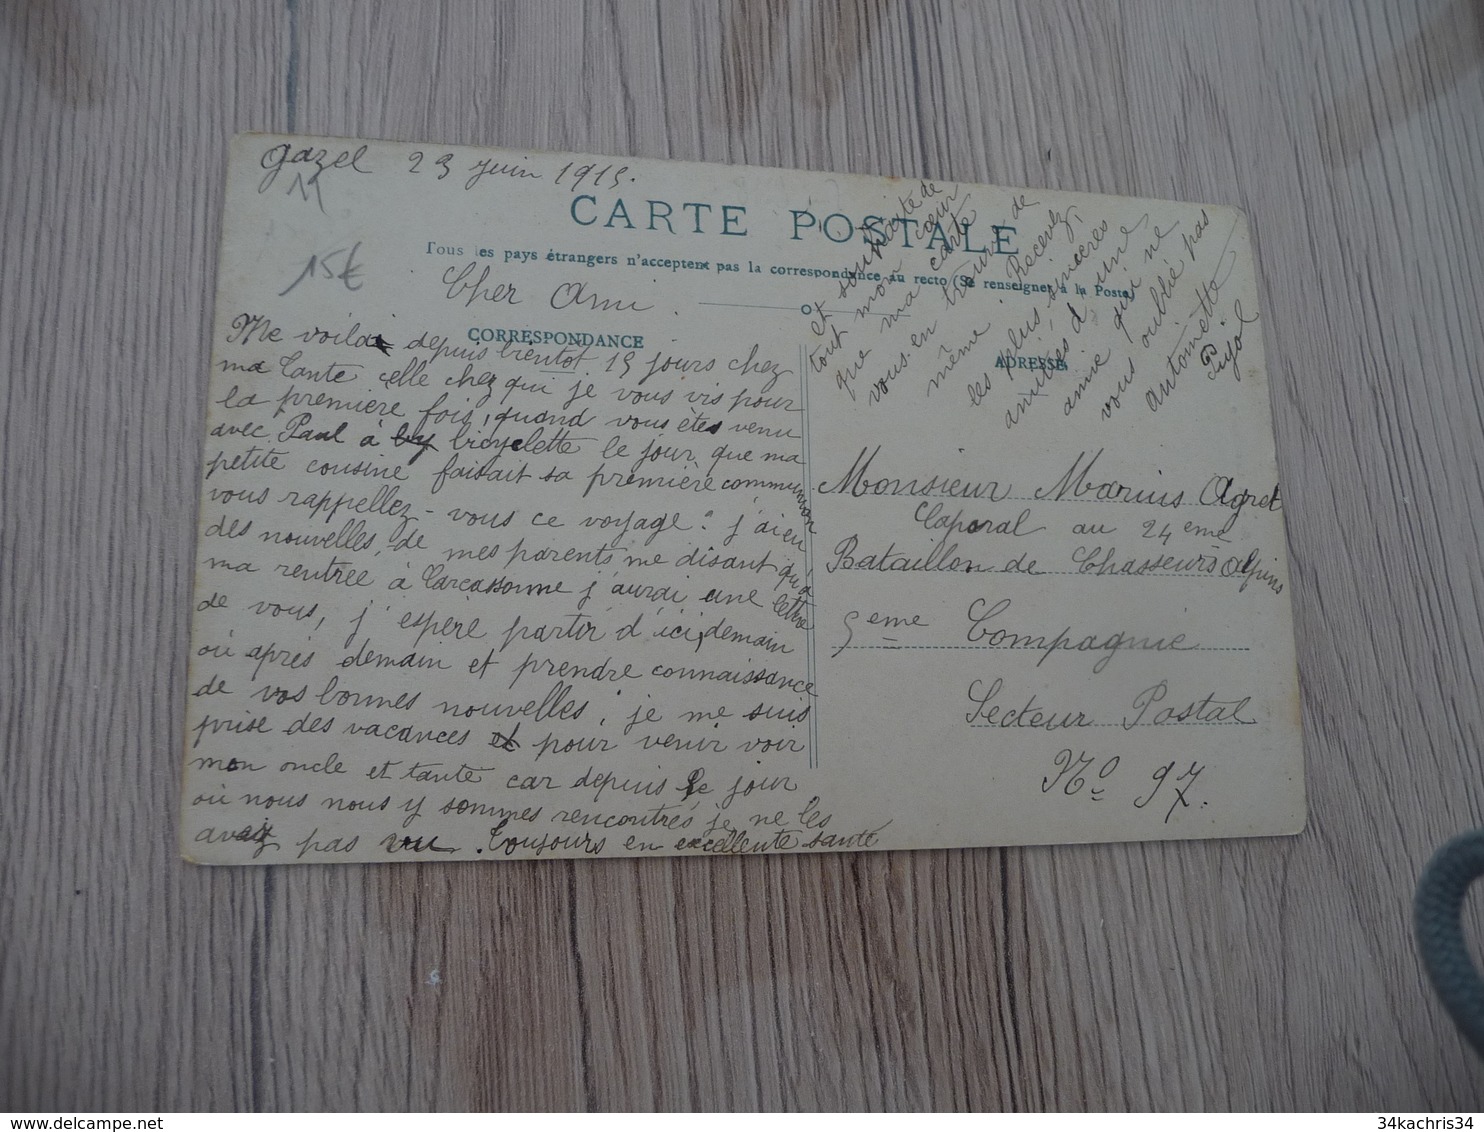 Gazel 23 Juin 1915.
11
15€
CARTE POSTALE
Tous les pays étrangers n'acceptent pas la correspondance au recto (Se renseigner à la Poste)
Cher Ami.
CORRESPONDANCE
Me voilà depuis bientot 15 jours chez
ma tante celle chez qui je vous vis pour
la première fois, quand vous êtes venu
avec Paul à by bicyclette le jour que ma
petite cousine faisait sa première communion
vous rappellez-vous ce voyage? j'ai eu
des nouvelles de mes parents me disant qu'à
ma rentrée à Carcassonne j'aurai une lettre
de vous, j'espère partir d'ici, demain
où après demain et prendre connaissance
de vos bonnes nouvelles; je me suis
prise des vacances et pour venir voir
mon oncle et tante car depuis le jour
où nous nous y sommes rencontrés je ne les
avais pas vu. Toujours en excellente santé
et souhaite de
tout mon cœur
que ma carte
vous en trouve de
même. Recevez,
les plus sincères
amitiés d'une
amie qui ne
vous oublie pas
Antoinette
Pujol
ADRESSE
Monsieur Marius Agret
Caporal au 24eme
Bataillon de Chasseurs Alpins
5eme Compagnie
Secteur Postal
No 97.
34kachris34